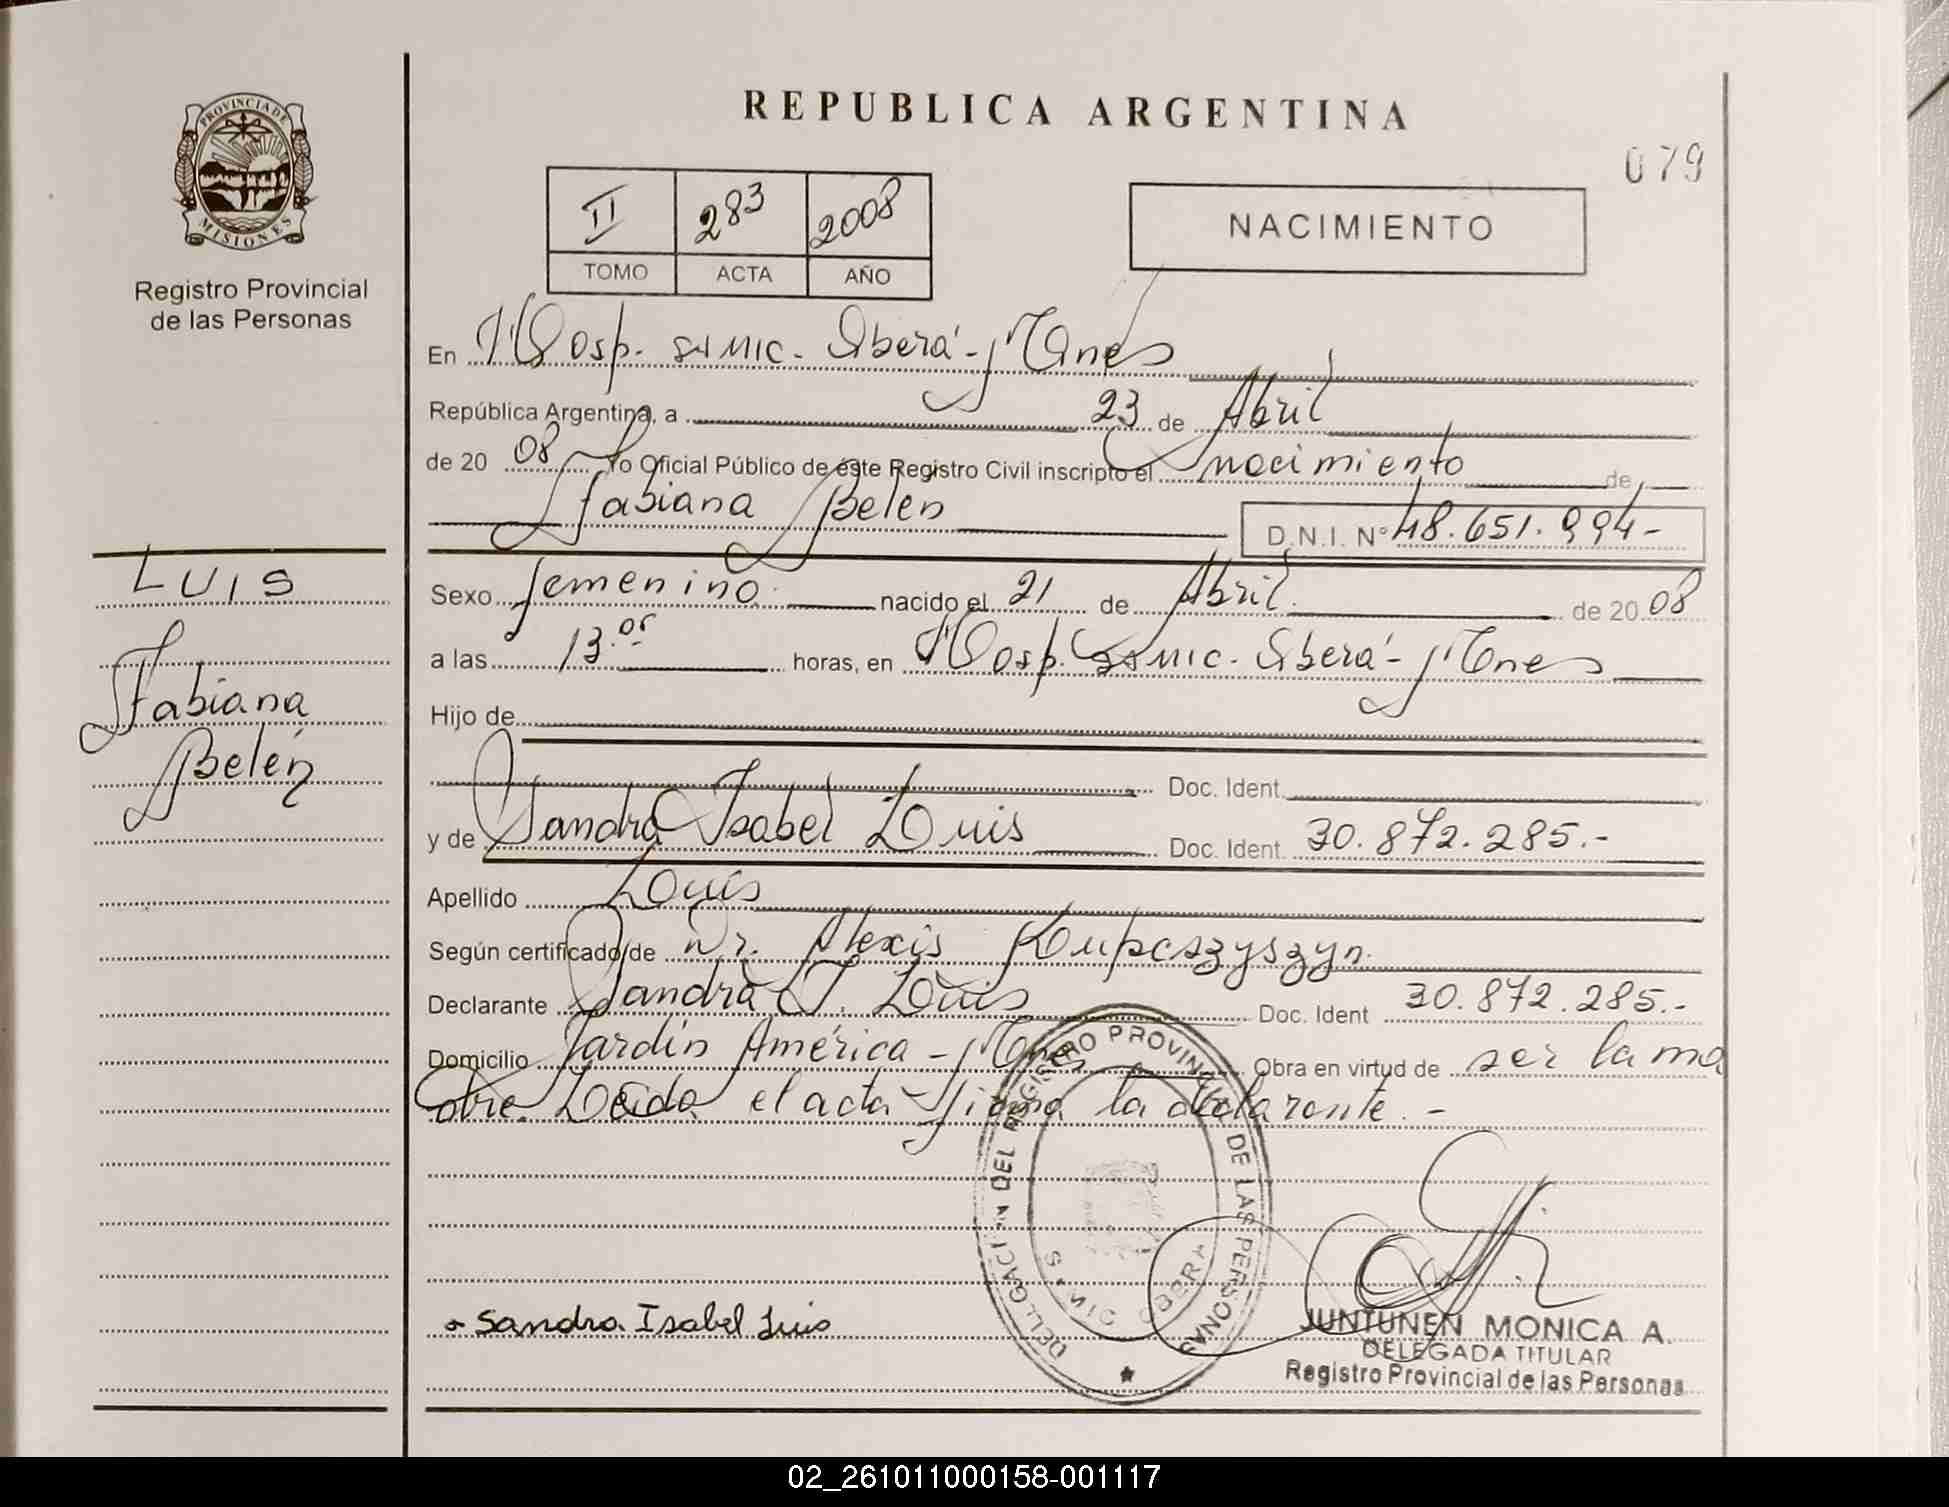 PROVINCIA DE
MISIONES
Registro Provincial
de las Personas
LUIS
Fabiana
Belén
REPUBLICA ARGENTINA
079
II 283 2008
TOMO ACTA AÑO
NACIMIENTO
En Hosp. SAMIC. Oberá - Mnes
República Argentina, a 23 de Abril
de 20 08 Yo Oficial Público de éste Registro Civil inscripto el nacimiento de
Fabiana Belén D.N.I. Nº 48.651.994-
Sexo femenino. nacido el 21 de Abril. de 20 08
a las 13.05 horas, en Hosp. SAMIC. Oberá - Mnes
Hijo de
Doc. Ident.
y de Sandra Isabel Luis Doc. Ident. 30.872.285.-
Apellido Luis
Según certificado de Dr. Alexis Kupczyszyn.
Declarante Sandra I. Luis Doc. Ident 30.872.285.-
Domicilio Jardín América - Mnes Obra en virtud de ser la ma
dre. Leída el acta firma la declarante. -
DELEGACION DEL REGISTRO PROVINCIAL DE LAS PERSONAS
OBERA
Sandra Isabel Luis
JUNTUNEN MONICA A.
DELEGADA TITULAR
Registro Provincial de las Personas
02_261011000158-001117